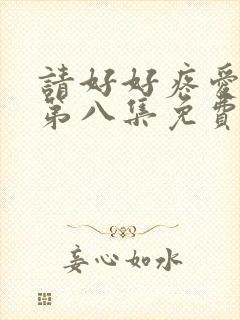 請好好疼愛
第八集免費
妄心如水